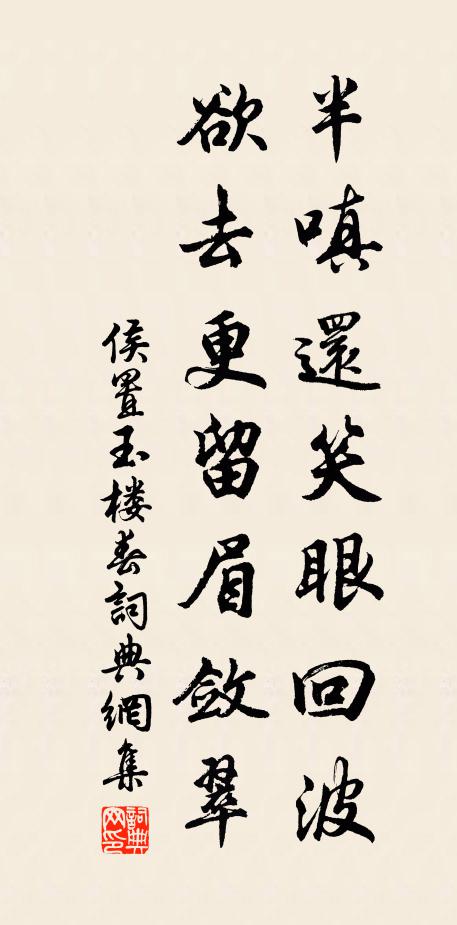 半嗔還笑眼回波
欲去更留眉斂翠
侯置玉楼春詞典網集
詞典网印